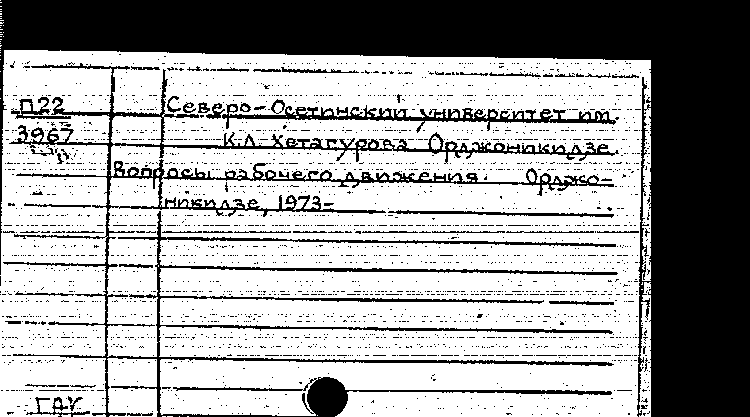 П22
3967
Северо-Осетинский университет им.
К.Л. Хетагурова Орджоникидзе.
Вопросы рабочего движения. Орджо-
никидзе, 1973-
ГАУ